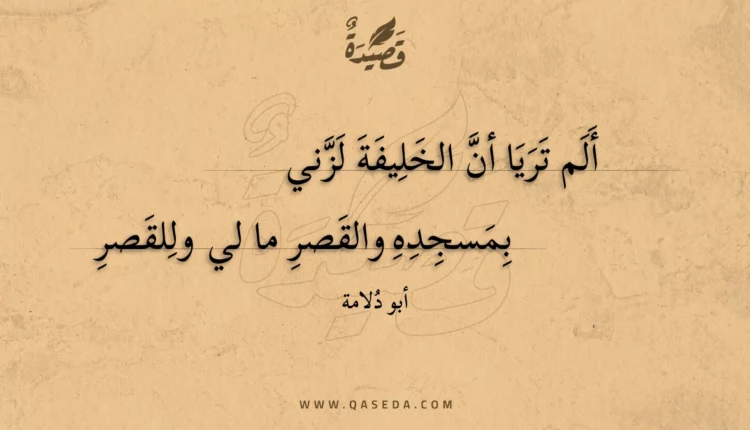 قَصِيْدَةٌ
أَلَم تَرَيَا أنَّ الخَلِيفَةَ لَزَّني
بِمَسجِدِهِ والقَصرِ ما لي ولِلقَصرِ
أبو دُلامة
WWW.QASEDA.COM